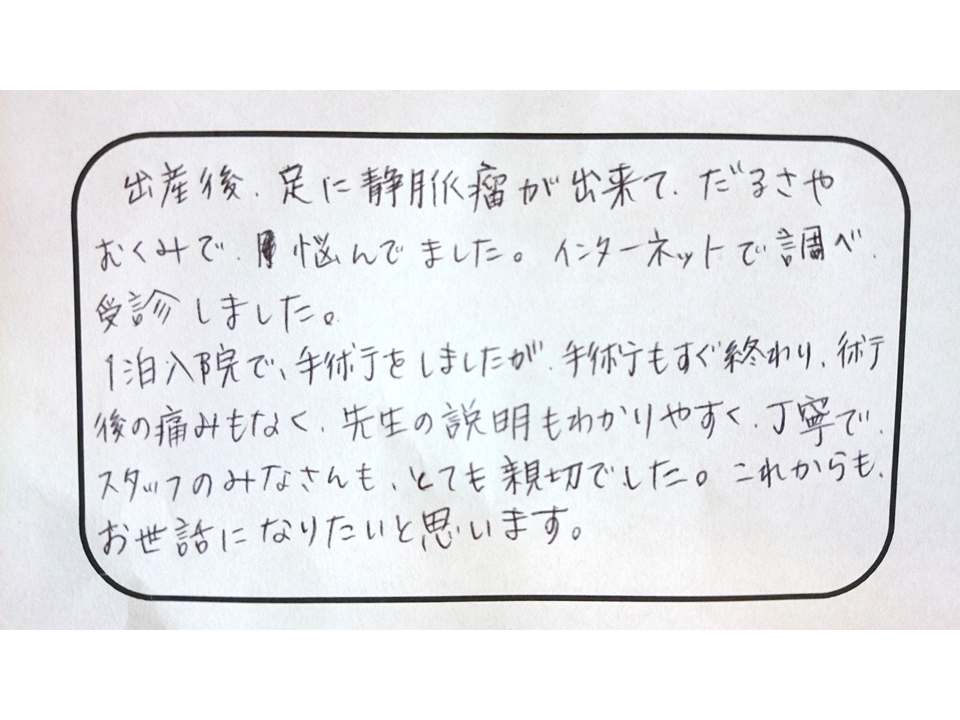 出産後、足に静脈瘤が出来て、だるさや
むくみで、悩んでました。インターネットで調べ、
受診しました。
1泊入院で、手術をしましたが、手術もすぐ終わり、術
後の痛みもなく、先生の説明もわかりやすく、丁寧で、
スタッフのみなさんも、とても親切でした。これからも、
お世話になりたいと思います。